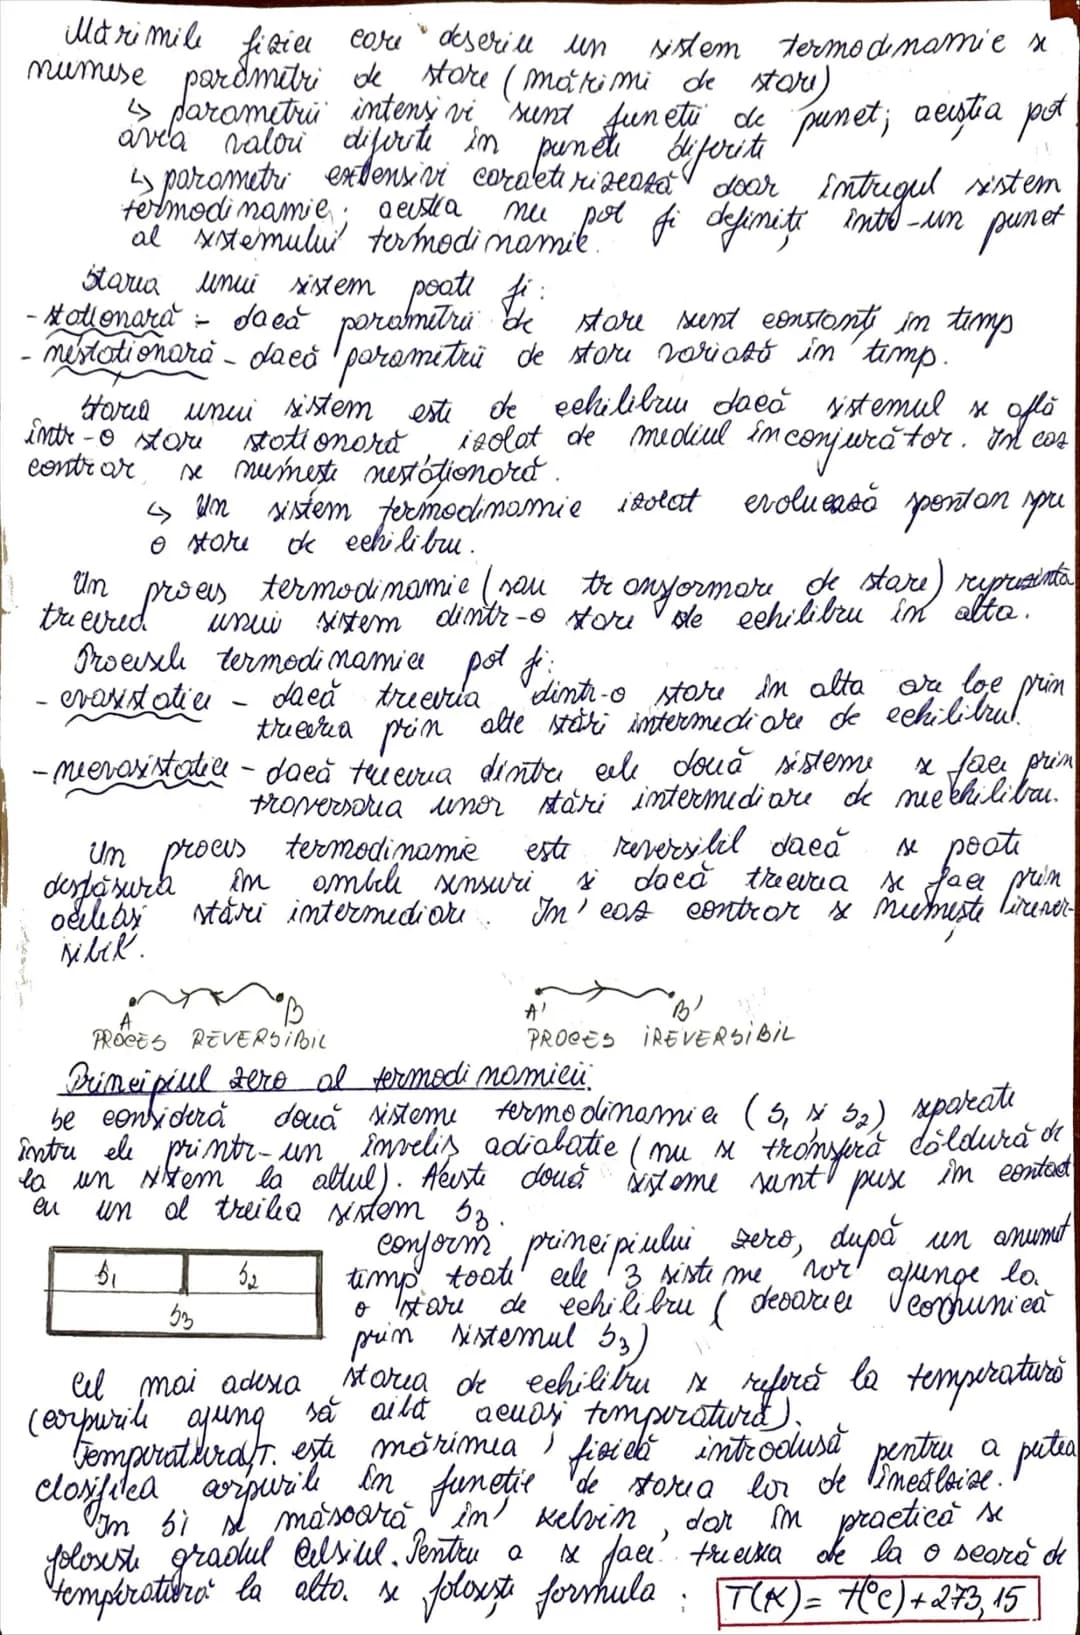 Mărimile fizice care descriu un sistem termodinamic se
numesc parametri de stare (mărimi de stare)
↳ parametrii intensivi sunt funcții de punct; aceștia pot
avea valori diferite în puncte diferite
↳ parametri extensivi caracterizează doar întregul sistem
termodinamic; aceștia nu pot fi definiți într-un punct
al sistemului termodinamic.
Starea unui sistem poate fi:
- staționară - dacă parametrii de stare sunt constanți în timp
- nestaționară - dacă parametrii de stare variază în timp.
Starea unui sistem este de echilibru dacă sistemul se află
într-o stare staționară, izolat de mediul înconjurător. În caz
contrar se numește nestaționară.
↳ Un sistem termodinamic izolat evoluează spontan spre
o stare de echilibru.
Un proces termodinamic (sau transformare de stare) reprezintă
trecerea unui sistem dintr-o stare de echilibru în alta.
Procesele termodinamice pot fi:
- cvasistatice - dacă trecerea dintr-o stare în alta are loc prin
trecerea prin alte stări intermediare de echilibru.
- necvasistatice - dacă trecerea dintre cele două sisteme se face prin
traversarea unor stări intermediare de neechilibru.
Un proces termodinamic este reversibil dacă se poate
desfășura în ambele sensuri și dacă trecerea se face prin
aceleași stări intermediare. În caz contrar se numește irever-
sibil.
A B A' B'
PROCES REVERSIBIL PROCES IREVERSIBIL
Principiul zero al termodinamicii.
Se consideră două sisteme termodinamice (S₁ și S₂) separate
între ele printr-un înveliș adiabatic (nu se transferă căldură de
la un sistem la altul). Aceste două sisteme sunt puse în contact
cu un al treilea sistem S₃.
Conform principiului zero, după un anumit
S₁ S₂
timp toate cele 3 sisteme vor ajunge la
o stare de echilibru (deoarece comunică
S₃
prin sistemul S₃)
Cel mai adesea starea de echilibru se referă la temperatură
(corpurile ajung să aibă aceeași temperatură).
Temperatura, T. este mărimea fizică introdusă pentru a putea
clasifica corpurile în funcție de starea lor de încălzire.
În SI se măsoară în kelvin, dar în practică se
folosește gradul Celsius. Pentru a se face trecerea de la o scară de
temperatură la alta. se folosește formula : T(K)= t(°C)+273,15